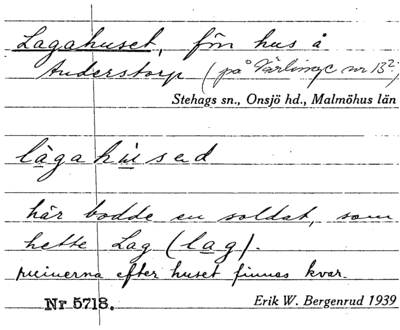 Lagahuset, f̈n hus å
Anderstorp (på Värlinge nr 13²)
Stehags sn., Onsjö hd., Malmöhus län
lågahu̇sed
här bodde en soldat, som
hette Lag (lag).
ruinerna efter huset finnes kvar.
Nr 5718.
Erik W. Bergenrud 1939